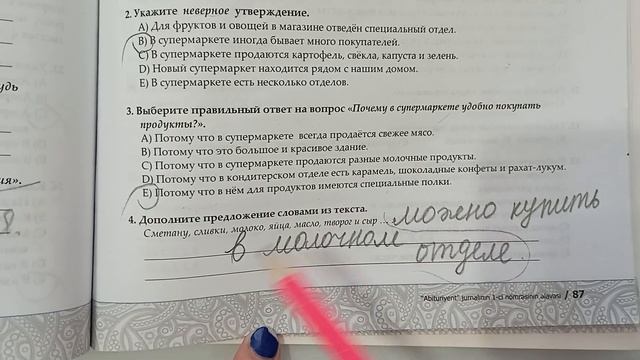 2. Укажите неверное утверждение.
A) Для фруктов и овощей в магазине отведён специальный отдел.
B) В супермаркете иногда бывает много покупателей.
C) В супермаркете продаются картофель, свёкла, капуста и зелень.
D) Новый супермаркет находится рядом с нашим домом.
E) В супермаркете есть несколько отделов.
удь
3. Выберите правильный ответ на вопрос «Почему в супермаркете удобно покупать
продукты?».
A) Потому что в супермаркете всегда продаётся свежее мясо.
B) Потому что это большое и красивое здание.
C) Потому что в супермаркете продаются разные молочные продукты.
D) Потому что в кондитерском отделе есть карамель, шоколадные конфеты и рахат-лукум.
E) Потому что в нём для продуктов имеются специальные полки.
ия».
4. Дополните предложение словами из текста.
Сметану, сливки, молоко, яйца, масло, творог и сыр ... можно купить
в молочном отделе.
"Abituriyent" jurnalının 1-ci nömrəsinin əlavəsi / 87